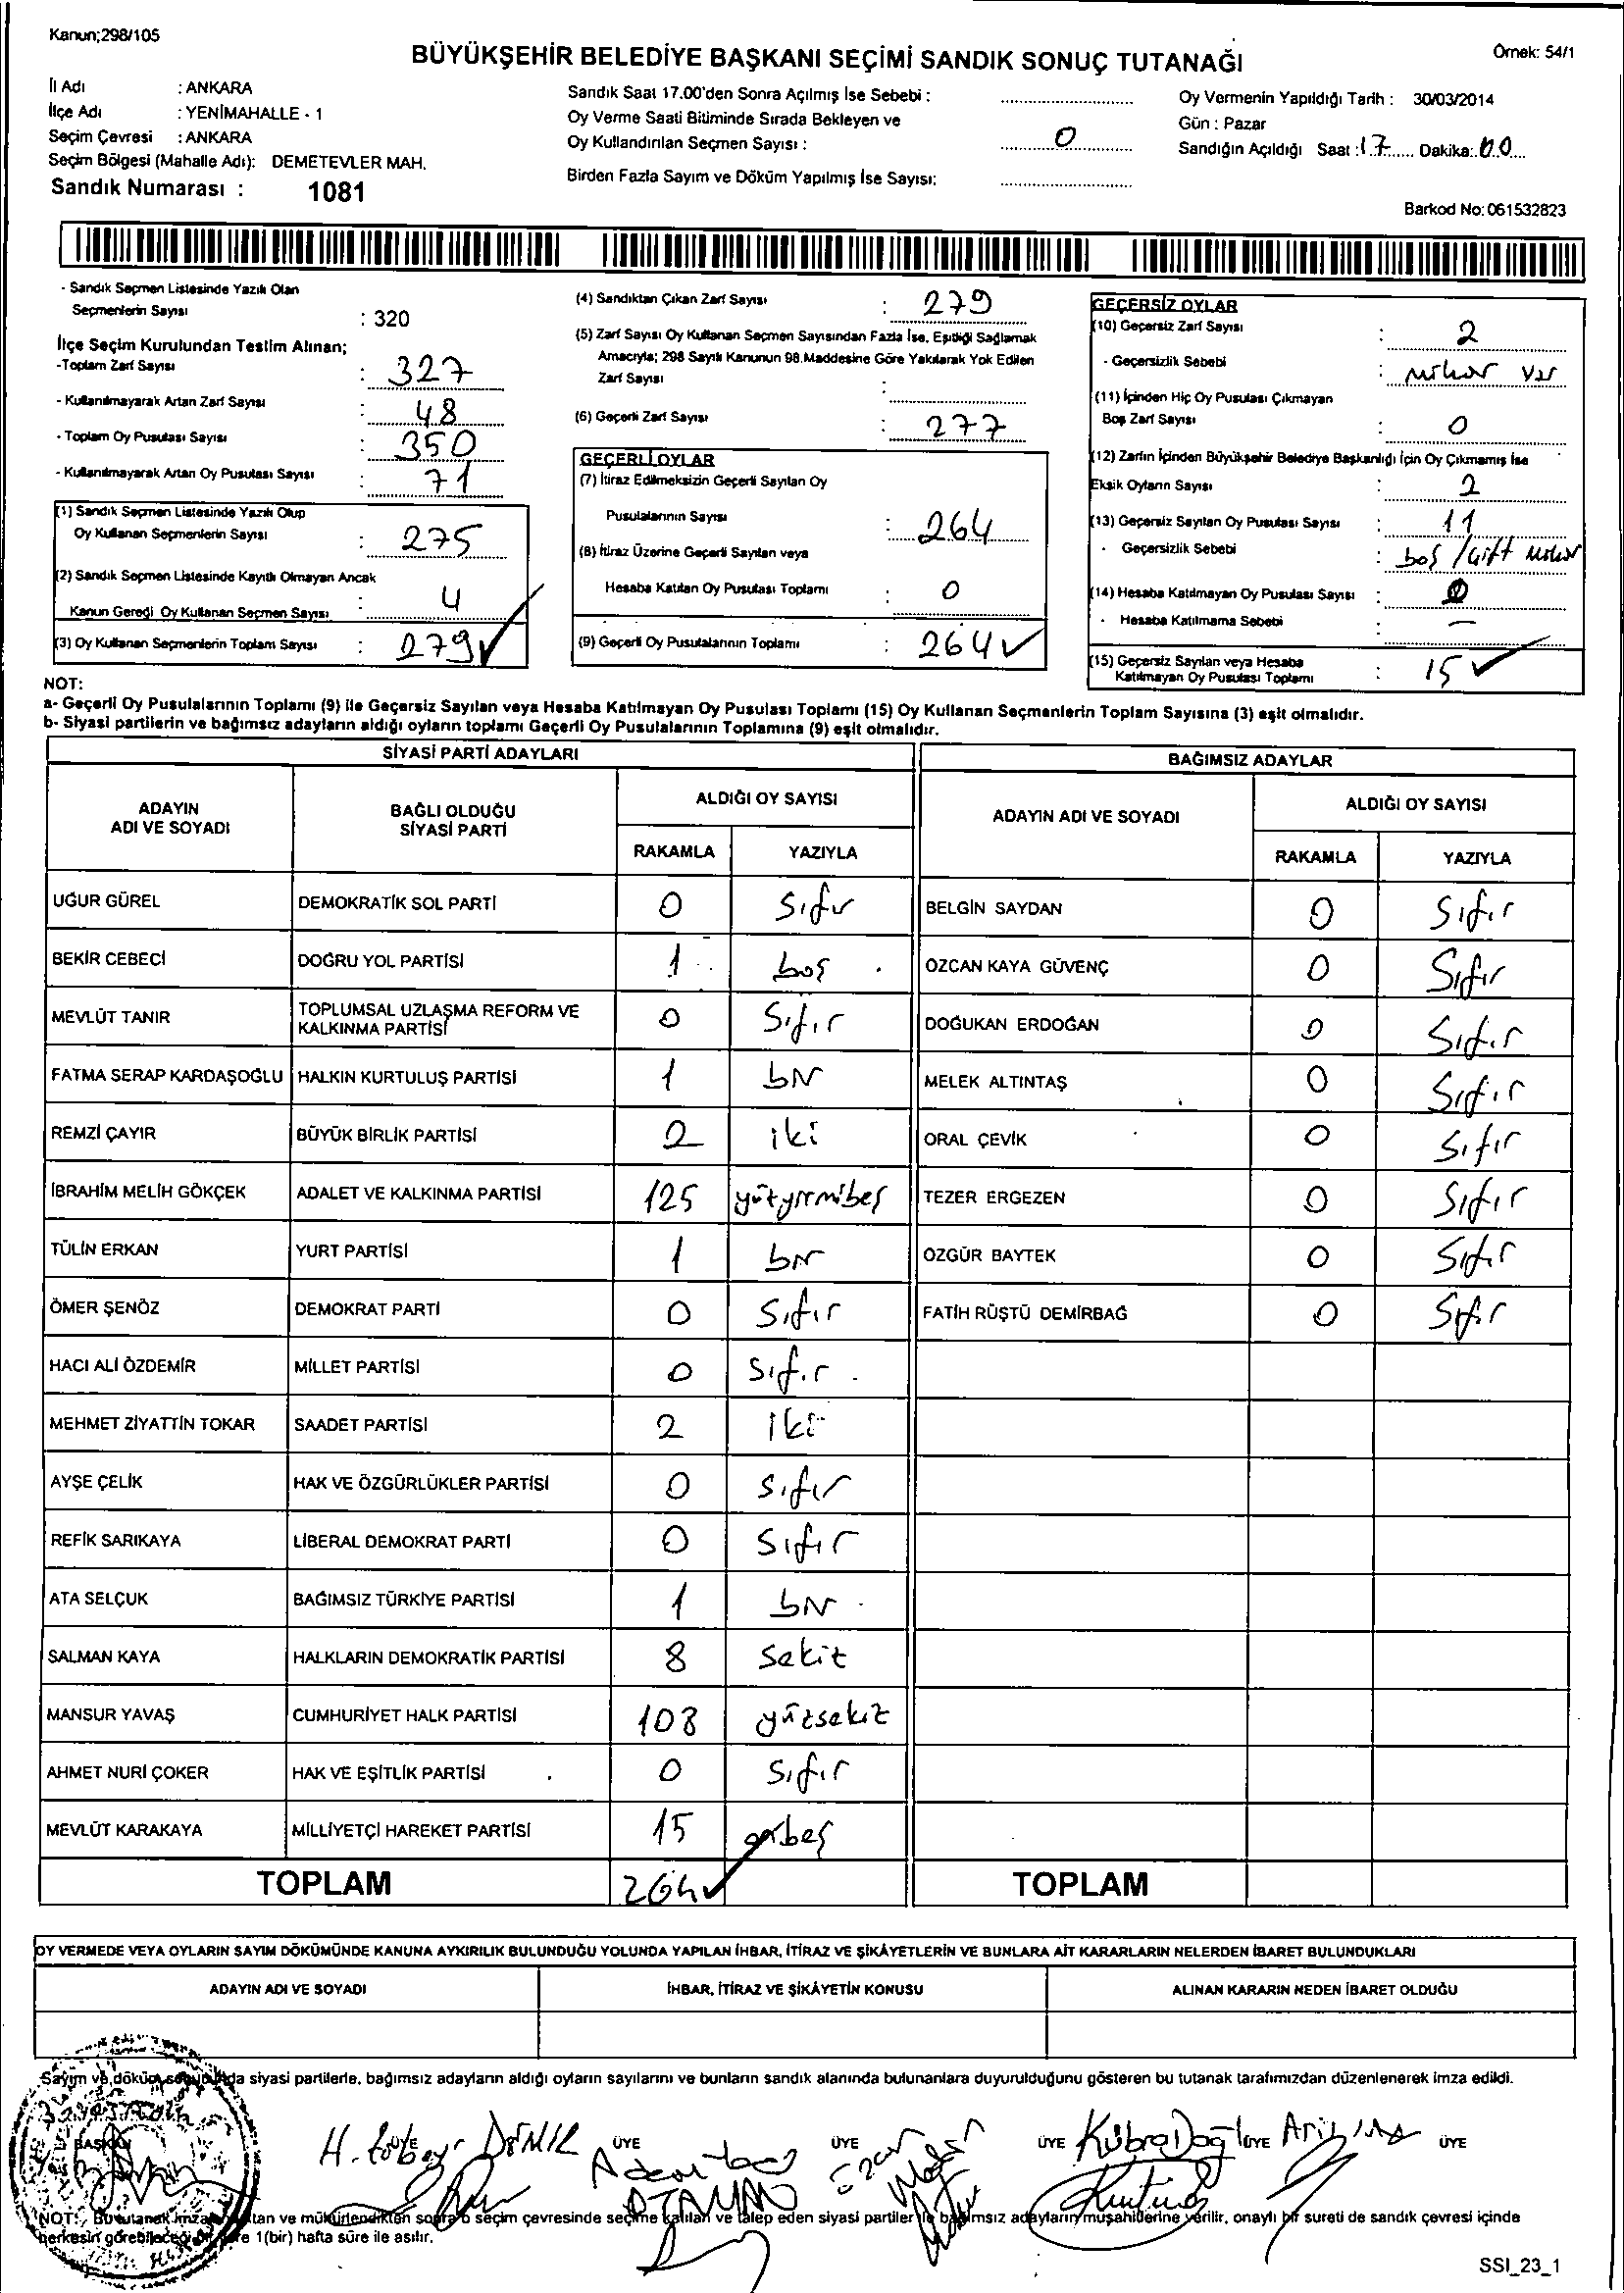 Kanun;298/105
BÜYÜKŞEHİR BELEDİYE BAŞKANI SEÇİMİ SANDIK SONUÇ TUTANAĞI
Örnek: 54/1
İl Adı : ANKARA
İlçe Adı : YENİMAHALLE - 1
Seçim Çevresi : ANKARA
Seçim Bölgesi (Mahalle Adı): DEMETEVLER MAH.
Sandık Numarası : 1081
Sandık Saat 17.00'den Sonra Açılmış İse Sebebi :
Oy Verme Saati Bitiminde Sırada Bekleyen ve
Oy Kullandırılan Seçmen Sayısı : 0
Birden Fazla Sayım ve Döküm Yapılmış İse Sayısı:
Oy Vermenin Yapıldığı Tarih : 30/03/2014
Gün : Pazar
Sandığın Açıldığı Saat : 17 Dakika: 00
Barkod No: 061532823
- Sandık Seçmen Listesinde Yazılı Olan
Seçmenlerin Sayısı : 320
İlçe Seçim Kurulundan Teslim Alınan;
-Toplam Zarf Sayısı : 327
- Kullanılmayarak Artan Zarf Sayısı : 48
- Toplam Oy Pusulası Sayısı : 350
- Kullanılmayarak Artan Oy Pusulası Sayısı : 71
(1) Sandık Seçmen Listesinde Yazılı Olup
Oy Kullanan Seçmenlerin Sayısı : 275
(2) Sandık Seçmen Listesinde Kayıtlı Olmayan Ancak
Kanun Gereği Oy Kullanan Seçmen Sayısı : 4
(3) Oy Kullanan Seçmenlerin Toplam Sayısı : 279
(4) Sandıktan Çıkan Zarf Sayısı : 279
(5) Zarf Sayısı Oy Kullanan Seçmen Sayısından Fazla İse, Eşitliği Sağlamak
Amacıyla; 298 Sayılı Kanunun 98.Maddesine Göre Yakılarak Yok Edilen
Zarf Sayısı :
(6) Geçerli Zarf Sayısı : 277
GEÇERLİ OYLAR
(7) İtiraz Edilmeksizin Geçerli Sayılan Oy
Pusulalarının Sayısı : 264
(8) İtiraz Üzerine Geçerli Sayılan veya
Hesaba Katılan Oy Pusulası Toplamı : 0
(9) Geçerli Oy Pusulalarının Toplamı : 264
GEÇERSİZ OYLAR
(10) Geçersiz Zarf Sayısı : 2
- Geçersizlik Sebebi : mühür var
(11) İçinden Hiç Oy Pusulası Çıkmayan
Boş Zarf Sayısı : 0
(12) Zarfın İçinden Büyükşehir Belediye Başkanlığı İçin Oy Çıkmamış İse
Eksik Oyların Sayısı : 2
(13) Geçersiz Sayılan Oy Pusulası Sayısı : 11
- Geçersizlik Sebebi : boş / çift mühür
(14) Hesaba Katılmayan Oy Pusulası Sayısı : 0
- Hesaba Katılmama Sebebi : —
(15) Geçersiz Sayılan veya Hesaba
Katılmayan Oy Pusulası Toplamı : 15
NOT:
a- Geçerli Oy Pusulalarının Toplamı (9) ile Geçersiz Sayılan veya Hesaba Katılmayan Oy Pusulası Toplamı (15) Oy Kullanan Seçmenlerin Toplam Sayısına (3) eşit olmalıdır.
b- Siyasi partilerin ve bağımsız adayların aldığı oyların toplamı Geçerli Oy Pusulalarının Toplamına (9) eşit olmalıdır.
SİYASİ PARTİ ADAYLARI
ADAYIN ADI VE SOYADI BAĞLI OLDUĞU SİYASİ PARTİ ALDIĞI OY SAYISI
RAKAMLA YAZIYLA
UĞUR GÜREL DEMOKRATİK SOL PARTİ 0 Sıfır
BEKİR CEBECİ DOĞRU YOL PARTİSİ 1 boş
MEVLÜT TANIR TOPLUMSAL UZLAŞMA REFORM VE KALKINMA PARTİSİ 0 Sıfır
FATMA SERAP KARDAŞOĞLU HALKIN KURTULUŞ PARTİSİ 1 bir
REMZİ ÇAYIR BÜYÜK BİRLİK PARTİSİ 2 iki
İBRAHİM MELİH GÖKÇEK ADALET VE KALKINMA PARTİSİ 125 yüzyirmibeş
TÜLİN ERKAN YURT PARTİSİ 1 bir
ÖMER ŞENÖZ DEMOKRAT PARTİ 0 Sıfır
HACI ALİ ÖZDEMİR MİLLET PARTİSİ 0 Sıfır
MEHMET ZİYATTİN TOKAR SAADET PARTİSİ 2 iki
AYŞE ÇELİK HAK VE ÖZGÜRLÜKLER PARTİSİ 0 sıfır
REFİK SARIKAYA LİBERAL DEMOKRAT PARTİ 0 Sıfır
ATA SELÇUK BAĞIMSIZ TÜRKİYE PARTİSİ 1 bir
SALMAN KAYA HALKLARIN DEMOKRATİK PARTİSİ 8 Sekiz
MANSUR YAVAŞ CUMHURİYET HALK PARTİSİ 108 yüzsekiz
AHMET NURİ ÇOKER HAK VE EŞİTLİK PARTİSİ 0 Sıfır
MEVLÜT KARAKAYA MİLLİYETÇİ HAREKET PARTİSİ 15 onbeş
TOPLAM 264
BAĞIMSIZ ADAYLAR
ADAYIN ADI VE SOYADI ALDIĞI OY SAYISI
RAKAMLA YAZIYLA
BELGİN SAYDAN 0 Sıfır
ÖZCAN KAYA GÜVENÇ 0 Sıfır
DOĞUKAN ERDOĞAN 0 Sıfır
MELEK ALTINTAŞ 0 Sıfır
ORAL ÇEVİK 0 Sıfır
TEZER ERGEZEN 0 Sıfır
ÖZGÜR BAYTEK 0 Sıfır
FATİH RÜŞTÜ DEMİRBAĞ 0 Sıfır
TOPLAM
OY VERMEDE VEYA OYLARIN SAYIM DÖKÜMÜNDE KANUNA AYKIRILIK BULUNDUĞU YOLUNDA YAPILAN İHBAR, İTİRAZ VE ŞİKÂYETLERİN VE BUNLARA AİT KARARLARIN NELERDEN İBARET BULUNDUKLARI
ADAYIN ADI VE SOYADI İHBAR, İTİRAZ VE ŞİKÂYETİN KONUSU ALINAN KARARIN NEDEN İBARET OLDUĞU
Sayım ve döküm sonucunda siyasi partilerle, bağımsız adayların aldığı oyların sayılarını ve bunların sandık alanında bulunanlara duyurulduğunu gösteren bu tutanak tarafımızdan düzenlenerek imza edildi.
BAŞKAN ÜYE ÜYE ÜYE ÜYE ÜYE ÜYE
NOT: Bu tutanak imzalandıktan ve mühürlendikten sonra o seçim çevresinde seçime katılan ve talep eden siyasi partiler ile bağımsız adayların müşahitlerine verilir, onaylı bir sureti de sandık çevresi içinde
herkesin görebileceği bir yere 1(bir) hafta süre ile asılır.
SSI_23_1